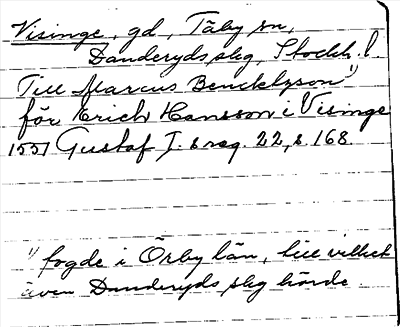 Visinge, gd, Täby sn,
Danderyds skg, Stockh. l.
Till Marcus Bencktzson 1)
för Erich Hansson i Visinge
1551 Gustaf I. s reg. 22, s. 168.
1) fogde i Örby län, till vilket
även Danderyds skg hörde.